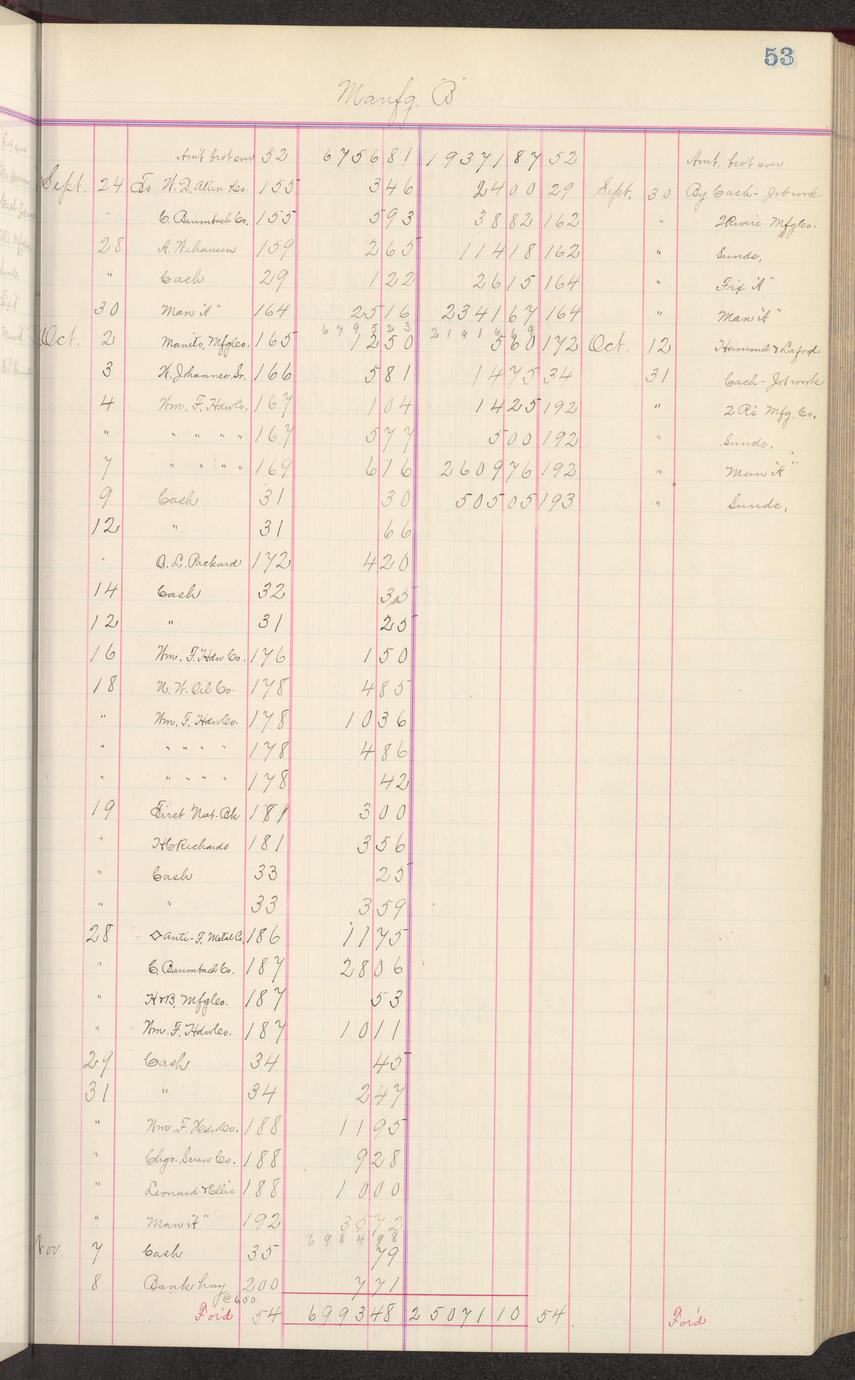 53
Manfg. "B"
Am't brot over 52 6756 81 19371 87 52 Amt. brot over
Sept. 24 To W. D. Allen Co. 155 3 46 24 00 29 Sept. 30 By Cash - Jobwork
" C. Baumbach Co. 155 5 93 38 82 162 " 2 Rivers Mfg Co.
28 159 2 65 114 18 162 " Sunds,
" Cash 29 1 22 26 15 164 " Fix "A"
30 Man "A" 164 25 16 2341 67 164 " Man "A"
6795 23 21916 69
Oct. 2 Manito. Mfg Co. 165 12 50 5 60 172 Oct. 12
3 166 5 81 14 75 34 31 Cash - Jobwork
4 Wm. F. Hdw Co. 167 1 04 14 25 192 " 2 R's Mfg. Co.
" " " " " 167 5 77 5 00 192 " Sunds,
7 " " " " 169 6 16 2609 76 192 " Man "A"
9 Cash 31 30 505 05 193 " Sunds,
12 " 31 66
" O. L. Packard 172 4 20
14 Cash 32 35
12 " 31 25
16 Wm. F. Hdw Co. 176 1 50
18 N. W. Oil Co. 178 4 85
" Wm. F. Hdw Co. 178 10 36
" " " " " 178 4 86
" " " " " 178 42
19 First Nat. Bk 181 3 00
" H C Richards 181 3 56
" Cash 33 25
" " 33 3 59
28 Anti-F. Metal Co. 186 11 75
" C. Baumbach Co. 187 28 06
" H & B. Mfg Co. 187 53
" Wm. F. Hdw Co. 187 10 11
29 Cash 34 45
31 " 34 2 47
" Wm. F. Hd. Co. 188 11 95
" Chgo. Screw Co. 188 9 28
" Leonard & Ellis 188 10 00
" Man "A" 192 35 72
6984 98
Nov. 7 Cash 35 79
8 200 7 71
@ 600
For'd 54 6993 48 25071 10 54 For'd